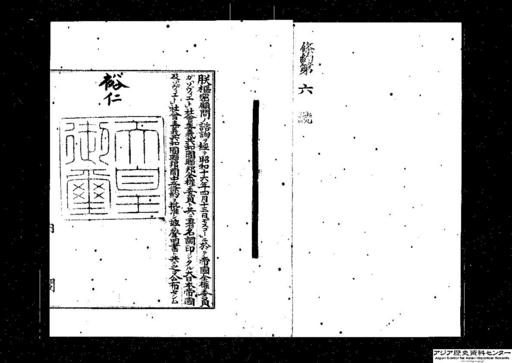 條約第六號
朕樞密顧問ノ諮詢ヲ經テ昭和十六年四月十三日モスコーニ於テ帝國全權委員
ガソヴィエト社會主義共和國聯邦全權委員ト共ニ署名調印シタル大日本帝國
及ソヴィエト社會主義共和國聯邦間中立條約ヲ批准シ茲ニ聲明書ト共ニ之ヲ公布セシム
裕仁
天皇
御璽
アジア歴史資料センター
Japan Center for Asian Historical Records